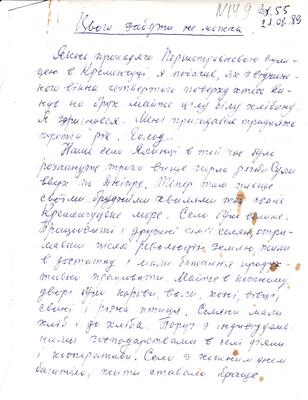 N149 ех.55
21.08.89
Цього забути не можна
Якось проходячи Першотравневою вули-
цею в Кременчуці я побачив, як з відчине-
ного вікна четвертого поверху хтось ки-
нув на брук майже цілу білу хлібину.
Я здригнувся. Мені пригадався тридцять
третій рік. Голод..
Наше село Ялинці в той час було
розкинуте трохи вище гирла річки Сули
вверх по Дніпру. Тепер там плеще
своїми брудними хвилями так зване
Кременчуцьке море. Село було велике.
Працьовиті і дружні були селяни, отри-
мавши після революції землю, жили
в достатку і мали бажання
працювати. Майже в кожному
дворі були корови, воли, коні, вівці,
свині і різна птиця. Селяни мали
хліб і до хліба. Поруч з індивідуаль-
ними господарствами в селі діяли
і кооперативи. Село з кожним днем
багатіло, жити ставало краще.